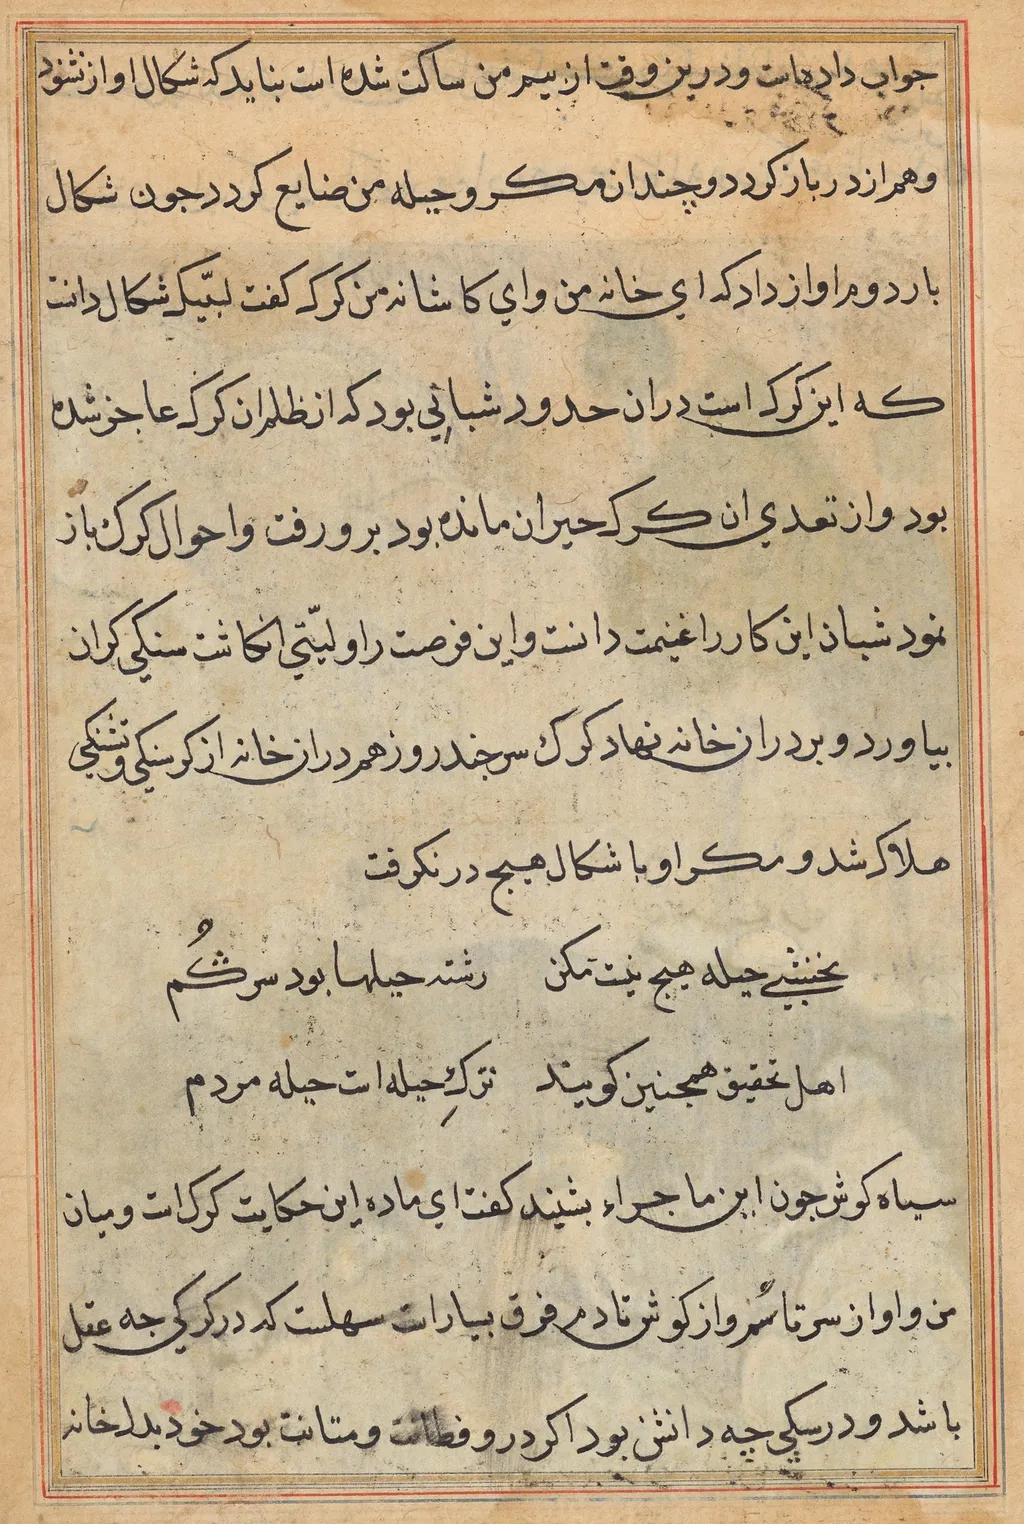 جواب داده است و درین وقت از بیم من ساکت شده است بناید که شکال اواز نشنود
و هم از در باز کردد و چندان مکر و حیله من ضایع کردد جون شکال
بار دوم اواز داد که ای خانه من و ای کاشانه من کرک کفت لبّیک شکال دانست
که این کرک است دران حدود شبانی بود که از ظلم ان کرک عاجز شده
بود و از تعدی ان کرک حیران مانده بود برو رفت و احوال کرک باز
نمود شبان این کار را غنیمت دانست و این فرصت را ولیّتی انکاشت سنکی کران
بیاورد و بر در ان خانه نهاد کرک سر جند روز هم دران خانه از کرسنکی و تشنکی
هلاک شد و مکر او با شکال هیج در نکرفت
نخشبی حیله هیج نیست مکن رشته حیلها بود سر کُم
اهل تحقیق همجنین کویند ترکِ حیله است حیله مردم
سیاه کوش جون این ماجراء بشنید کفت ای ماده این حکایت کرک است و میان
من و او از سر تا سُم و از کوش تا دم فرق بسیار است سهلست که در کرکی جه عقل
باشد و در سکی چه دانش بود اکر درو فطانت و متانت بود خود بدا خانه